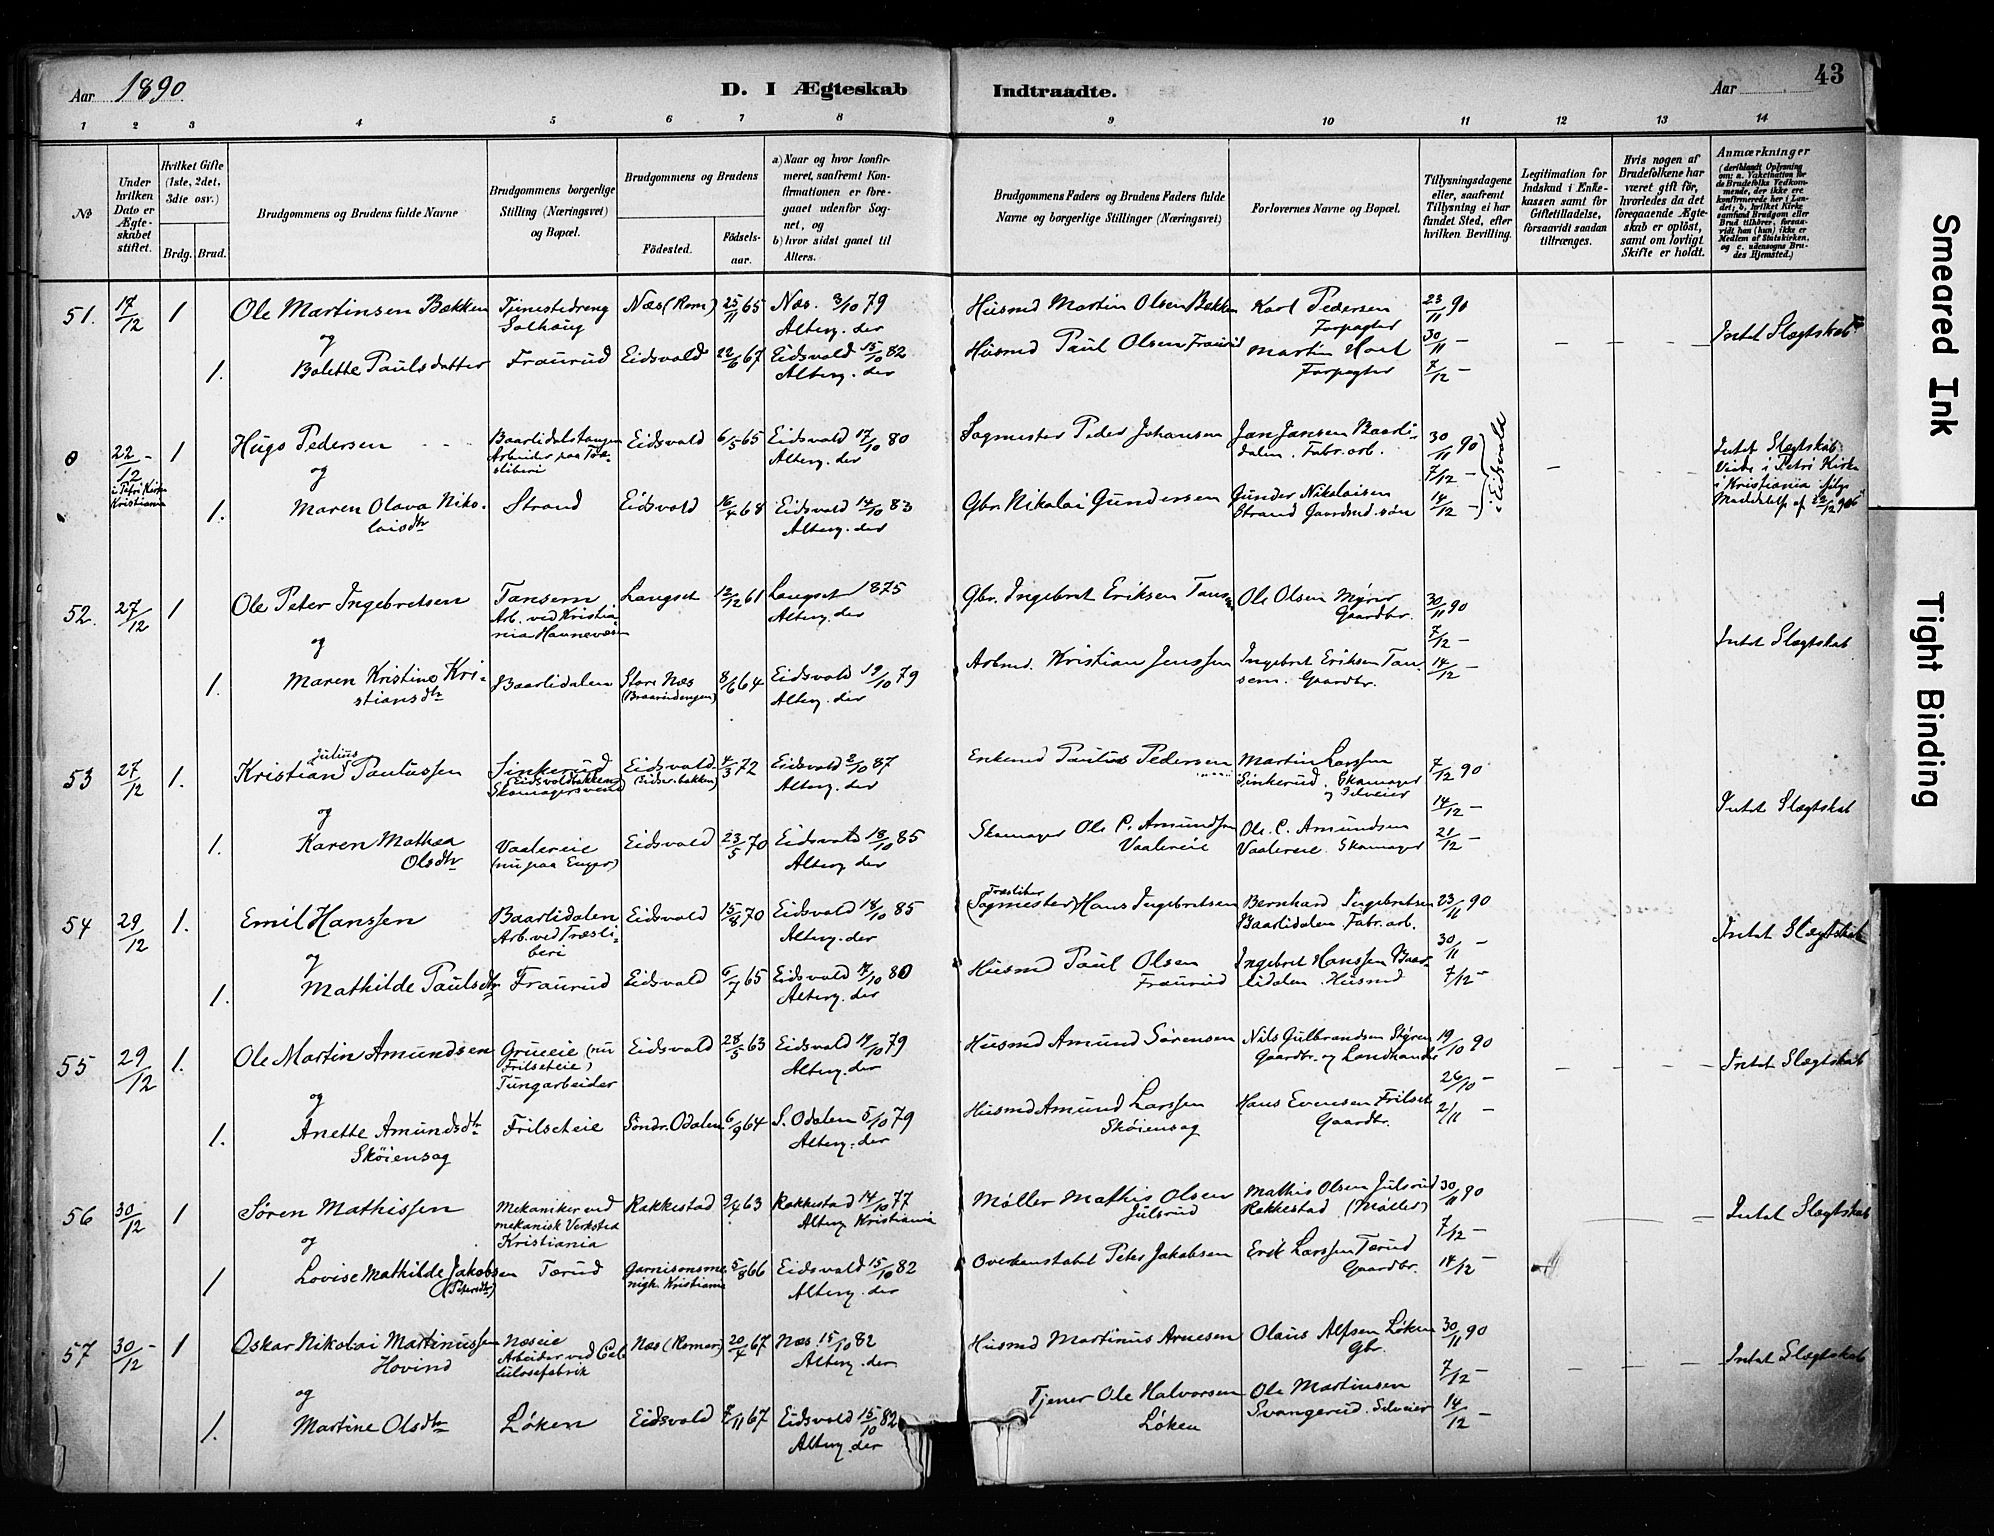 Aar 1890
D. I Ægteskab Indtraadte.
Aar 43
1 2 3 4 5 6 7 8 9 10 11 12 13 14
№
Under hvilken Dato er Ægteskabet stiftet.
Hvilket Gifte (1ste, 2det, 3die osv.)
Brdg. Brud.
Brudgommens og Brudens fulde Navne
Brudgommens borgerlige Stilling (Næringsvei) og Bopæl.
Brudgommens og Brudens
Födested. Födsels-aar.
a) Naar og hvor konfirmeret, saafremt Konfirmationen er foregaaet udenfor Sognet, og
b) hvor sidst gaaet til Alters.
Brudgommens Faders og Brudens Faders fulde Navne og borgerlige Stillinger (Næringsvei)
Forlovernes Navne og Bopæl.
Tillysningsdagene eller, saafremt Tillysning ei har fundet Sted, efter hvilken Bevilling.
Legitimation for Indskud i Enkekassen samt for Giftetilladelse, forsaavidt saadan tiltrænges.
Hvis nogen af Brudefolkene har været gift för, hvorledes da det foregaaende Ægteskab er oplöst, samt om lovligt Skifte er holdt.
Anmærkninger
51. 17/12 1 Ole Martinsen Bækken Tjenestedreng Solhaug Næs (Rom) 25/11 65 Næs. 3/10 79 Alterg. der Husmd Martin Olsen Bækken Karl Pedersen Forpagter 23/11 90
og 30/11 – Intet Slægtskab
1. Bolette Paulsdatter Fraurud Eidsvold 22/6 67 Eidsvold 15/10 82 Alterg. der Husmd Paul Olsen Fraurud Martin Hoel Forpagter 7/12 –
0 22/12 – i Petri Kirke Kristiania 1 Hugo Pedersen Baarlidalstangen Arbeider paa Træsliberi Eidsvold 6/5 65 Eidsvold 17/10 80 Alterg. der Sagmester Peder Johansen Jan Jansen Baarlidalen. Fabr. arb. 30/11 90
og 7/12 – i Eidsvold Intet Slægtskab. Viede i Petri Kirke i Kristiania ifølge Meddelelse af 22/12 90
1. Maren Olava Nikolaisdtr Strand Eidsvold 16/4 68 Eidsvold 14/10 83 Alterg. der Gbr. Nikolai Gundersen Gunder Nikolaisen Strand Gaardmd. søn 14/12 –
52. 27/12 1 Ole Peter Ingebretsen Tansem Arb. ved Kristiania Havnevæsen Langset 12/12 61 Langset 1875 Alterg. der Gbr. Ingebret Eriksen Tansem Ole Olsen Myrer Gaardbr. 30/11 90
og 7/12 – Intet Slægtskab
1. Maren Kristine Kristiansdtr Baarlidalen Store Næs 8/6 64 Eidsvold 19/10 79 Alterg. der Arbmd. Kristian Jenssen Ingebret Eriksen Tansem. Gaardbr. 14/12 –
53 27/12 1. Kristian Julius Paulussen Sinkerud Eidsvoldbakken Skomagersvend Eidsvold (Eidsv. bakken) 4/3 72 Eidsvold 2/10 87 Enkemd Paulus Pedersen Martin Larssen Sinkerud. Skomager og Selveier 7/12 90
og 14/12 – Intet Slægtskab
1. Karen Mathea Olsdtr Vaalereie (nu paa Enger) Eidsvold 23/5 70 Eidsvold 18/10 85 Alterg der Skomager Ole C. Amundsen Vaalereie Ole C. Amundsen Vaalereie. Skomager 21/12 –
54 29/12 1. Emil Hanssen Baarlidalen Arb. ved Træsliberi Eidsvold 15/8 70 Eidsvold 18/10 85 Alterg. der Træsliber (Sagmester) Hans Ingebretsen Bernhard Ingebretsen Baarlidalen Fabr. arb. 23/11 90
og 30/11 – Intet Slægtskab
1. Mathilde Paulsdtr Fraurud Eidsvold 6/7 65 Eidsvold 17/10 80 Alterg. der Husmd Paul Olsen Fraurud Ingebret Hanssen Baarlidalen. Husmd 7/12 –
55 29/12 1. Ole Martin Amundsen Grueeie (nu Frilseteie) Tungarbeider Eidsvold 28/5 63 Eidsvold 19/10 79 Alterg. der Husmd Amund Sørensen Nils Gulbrandsen Styren Gaardbr. og Landhandl. 19/10 90
og 26/10 – Intet Slægtskab
1. Anette Amundsdtr Sköiensag Frilseteie Söndr. Odalen 6/9 64 S. Odalen 5/10 79 Alterg. der Husmd Amund Larssen Skøiensag Hans Evensen Frilset Gaardbr. 2/11 –
56 30/12 1 Søren Mathissen Mekaniker ved mekanisk Verksted Kristiania Rakkestad 9/4 63 Rakkestad 14/10 77 Alterg Kristiania Møller Mathis Olsen Julsrud Mathis Olsen Julsrud Rakkestad (Møller) 30/11 90
og 7/12 – Intet Slægtskab
1 Lovise Mathilde Jakobsen (Petersdtr) Tærud Garnisonsmenigh. Kristiania 5/8 66 Eidsvold 15/10 82 Alterg. der Overkonstabel Peter Jakobsen Erik Larssen Tærud Gaardbr. 14/12 –
57 30/12 – 1 Oskar Nikolai Martinussen Hovind Næseie Arbeider ved Cellulosefabrik Næs (Romer) 20/4 67 Næs. 15/10 82 Alterg. der Husmd Martinus Arnesen Olaus Alfsen Løken Gbr. 30/11 90
og 7/12 – Intet Slægtskab
1. Martine Olsdtr Løken Eidsvold 7/11 67 Eidsvold 15/10 82 Alterg. der Tjener Ole Halvorsen Løken Ole Martinsen Svangerud. Selveier 14/12 –
Smeared Ink
Tight Binding